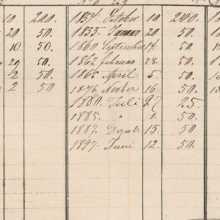 10 200. 1854 October 10 200.
20 50. 1855. Januar 20 50.
10 50. 1860 September 14 50.
29 50. 1862 Februar 28 50.
2 50. 1865 April 5 50.
2 50. 1876 16 50.
1880 Juli 27 25
1885. " 1. 50.
1887. 15. 50.
1897. Juni 12. 50.